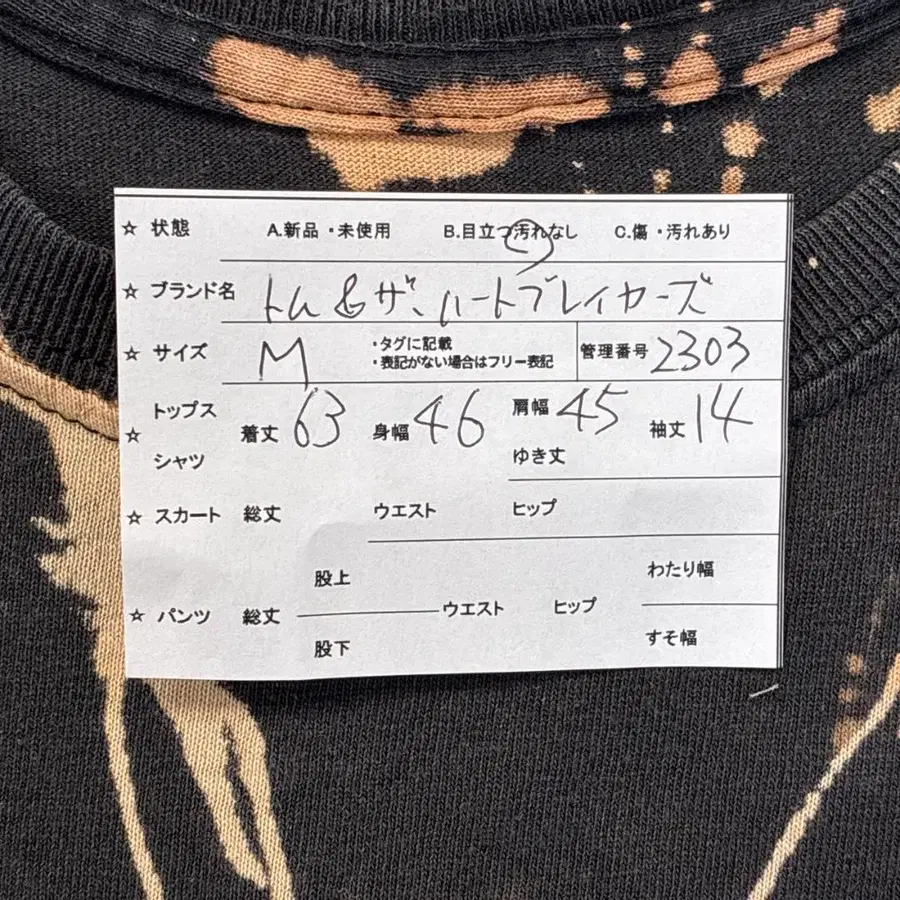 ☆ 状態 A.新品・未使用 B.目立つ汚れなし C.傷・汚れあり
☆ ブランド名 トム&ザ、ハートブレイカーズ
☆ サイズ M ・タグに記載 管理番号 2303
・表記がない場合はフリー表記
トップス
☆ 着丈 63 身幅 46 肩幅 45 袖丈 14
シャツ ゆき丈
☆ スカート 総丈 ウエスト ヒップ
股上 わたり幅
☆ パンツ 総丈 ウエスト ヒップ
股下 すそ幅